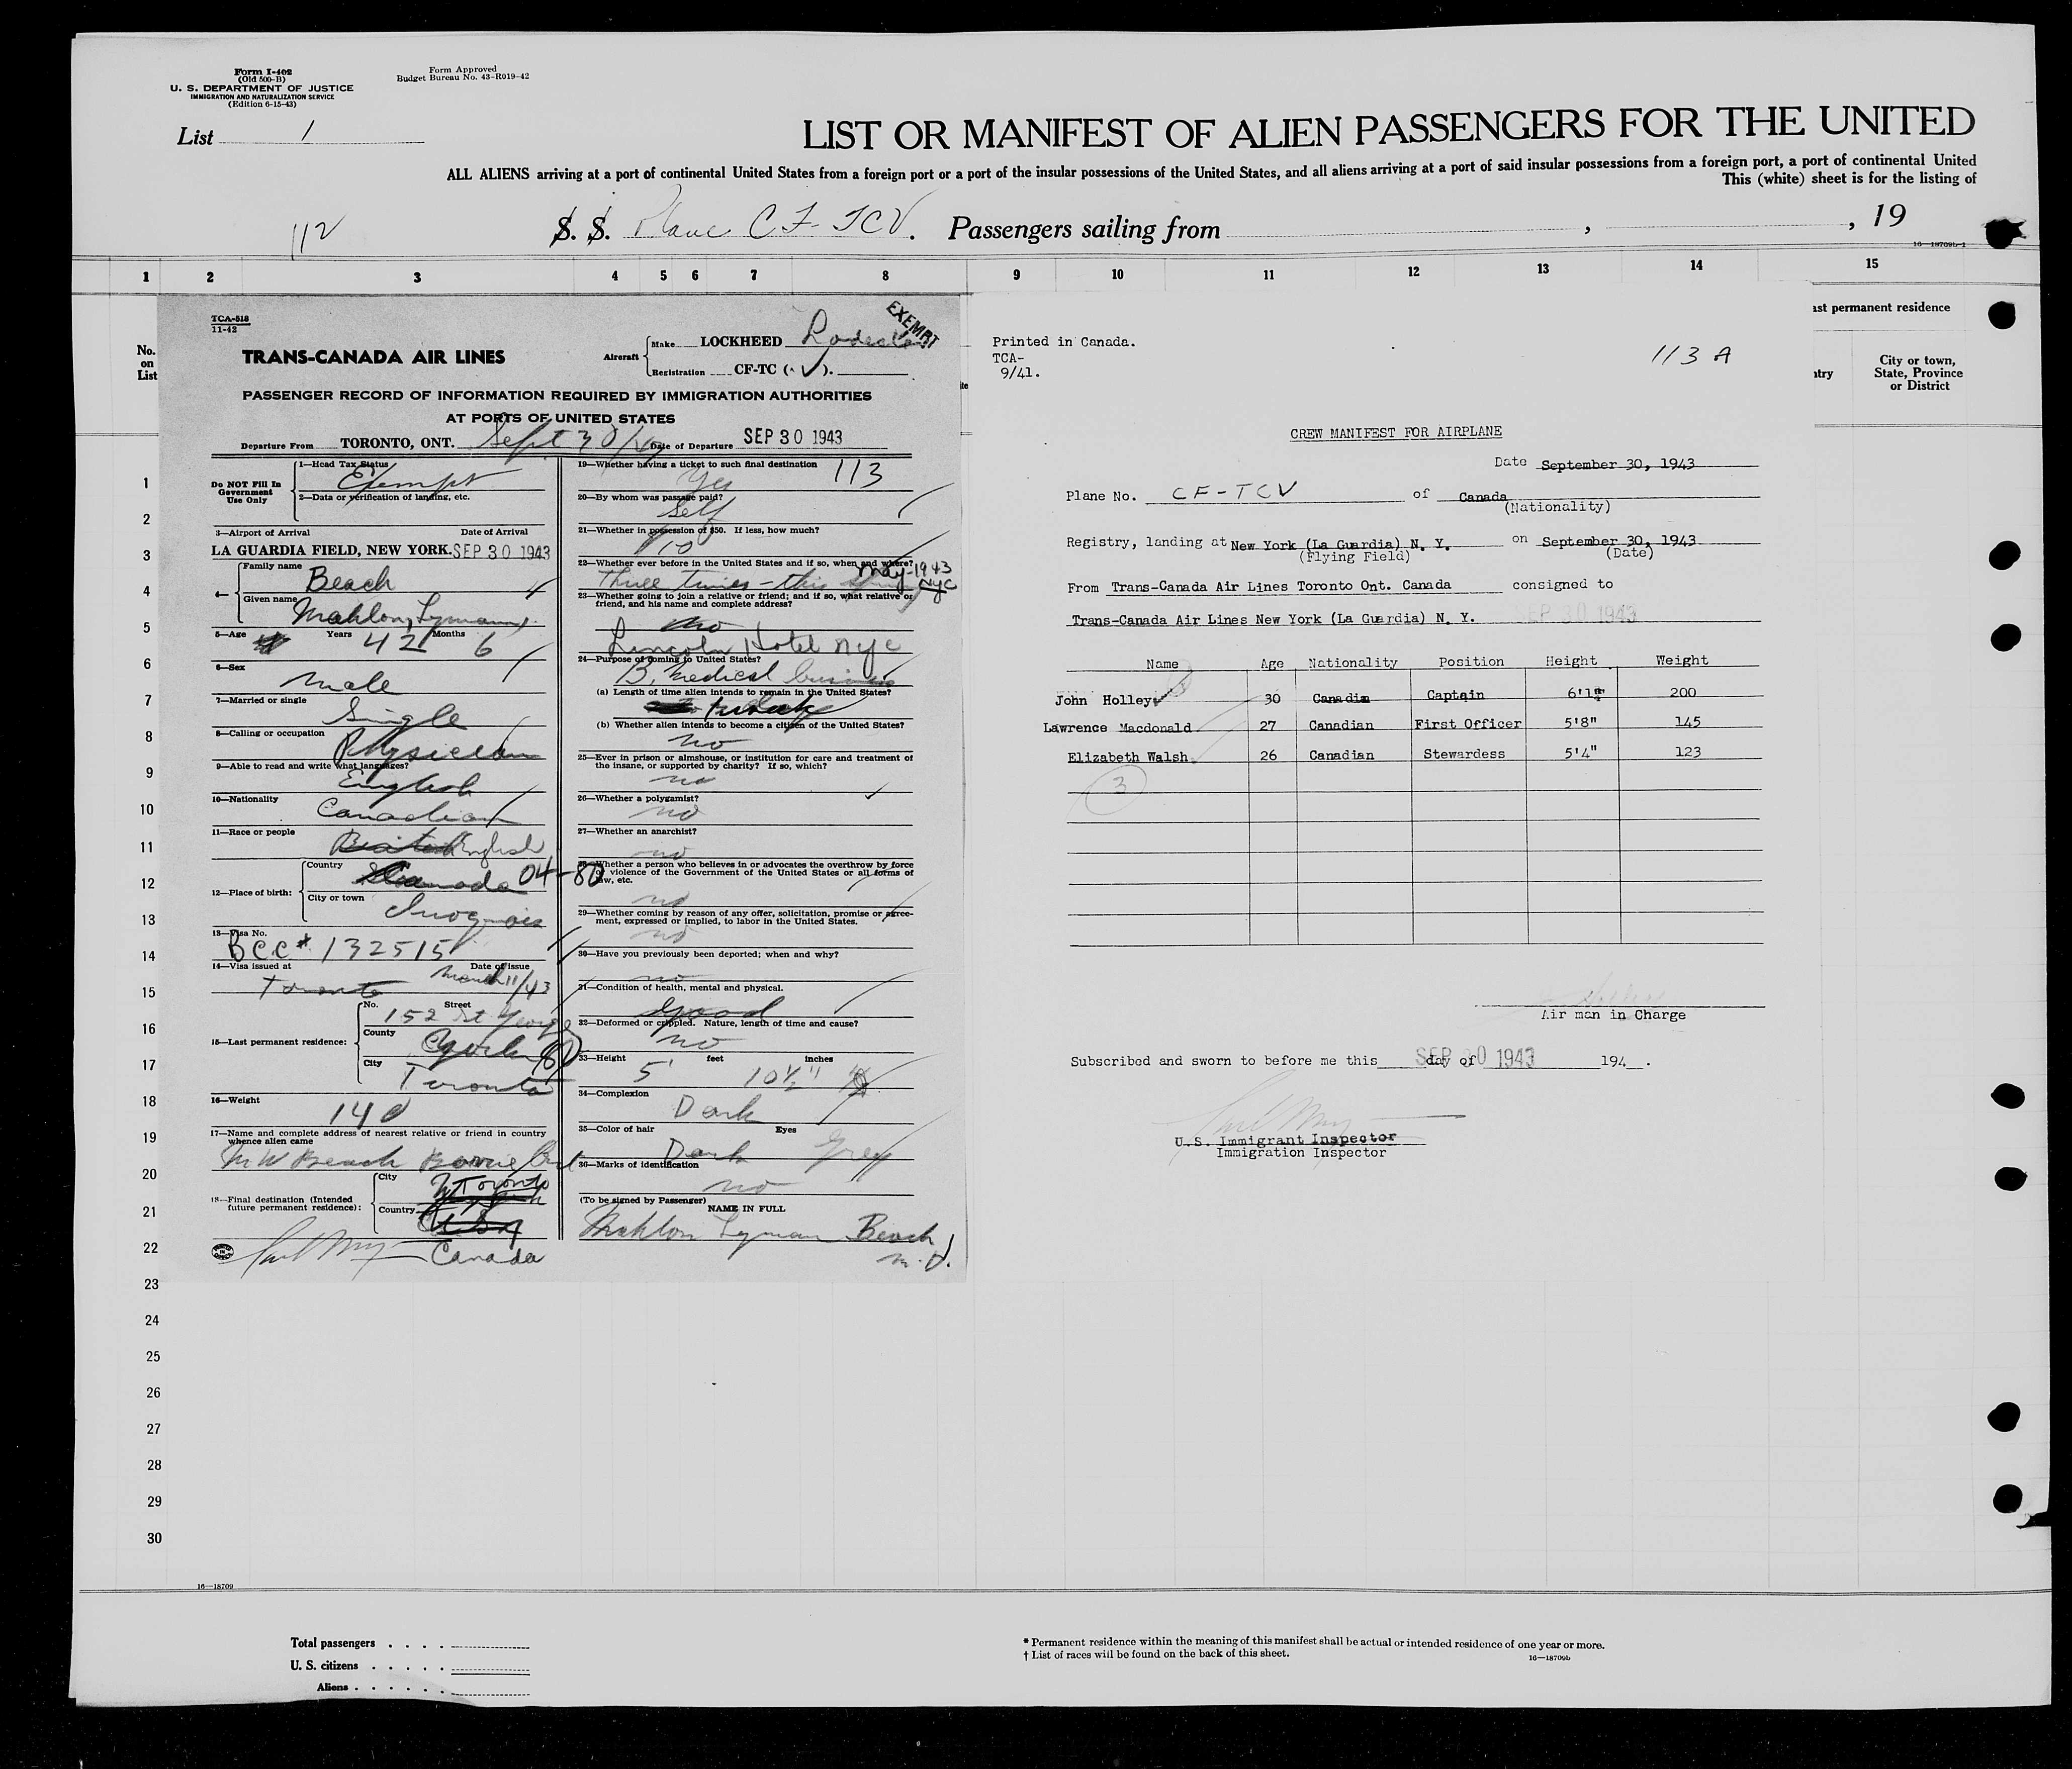 Form I-402
(Old 500-B)
U. S. DEPARTMENT OF JUSTICE
IMMIGRATION AND NATURALIZATION SERVICE
(Edition 6-15-43)
Form Approved
Budget Bureau No. 43-R019-42
List 1
LIST OR MANIFEST OF ALIEN PASSENGERS FOR THE UNITED
ALL ALIENS arriving at a port of continental United States from a foreign port or a port of the insular possessions of the United States, and all aliens arriving at a port of said insular possessions from a foreign port, a port of continental United
This (white) sheet is for the listing of
112
S. S. Plane CF-TCV. Passengers sailing from , , 19
16—18709b-1
1 2 3 4 5 6 7 8 9 10 11 12 13 14 15
No. on List
ast permanent residence
ntry
City or town, State, Province or District
TCA-518
11-42
EXEMPT
TRANS-CANADA AIR LINES
Aircraft
Make LOCKHEED Lodestar
Registration CF-TC (V).
PASSENGER RECORD OF INFORMATION REQUIRED BY IMMIGRATION AUTHORITIES
AT PORTS OF UNITED STATES
Departure From TORONTO, ONT. Sept 30/43 Date of Departure SEP 30 1943
Do NOT Fill In Government Use Only
1—Head Tax Status
Exempt
2—Data or verification of landing, etc.
3—Airport of Arrival Date of Arrival
LA GUARDIA FIELD, NEW YORK. SEP 30 1943
4— Family name Beach
Given name Mahlon, Lyman
5—Age Years 42 Months 6
6—Sex
Male
7—Married or single
Single
8—Calling or occupation
Physician
9—Able to read and write what languages?
English
10—Nationality
Canadian
11—Race or people
English
12—Place of birth:
Country
Canada 04-80
City or town
Iroquois
13—Visa No.
BCC# 132515
14—Visa issued at Date of issue
Toronto March 11/43
15—Last permanent residence:
No. Street
152 St George
County
York 80
City
Toronto
16—Weight
140
17—Name and complete address of nearest relative or friend in country
whence alien came
M W Beach Barrie Ont
18—Final destination (Intended future permanent residence):
City
Toronto
Country
Canada
19—Whether having a ticket to such final destination 113
Yes
20—By whom was passage paid?
Self
21—Whether in possession of $50. If less, how much?
22—Whether ever before in the United States and if so, when and where?
May-1943
Three times - this NYC
23—Whether going to join a relative or friend; and if so, what relative or
friend, and his name and complete address?
no
Lincoln Hotel NYC
24—Purpose of coming to United States?
B. Medical business
(a) Length of time alien intends to remain in the United States?
(b) Whether alien intends to become a citizen of the United States?
no
25—Ever in prison or almshouse, or institution for care and treatment of
the insane, or supported by charity? If so, which?
no
26—Whether a polygamist?
no
27—Whether an anarchist?
no
28—Whether a person who believes in or advocates the overthrow by force
or violence of the Government of the United States or all forms of
law, etc.
no
29—Whether coming by reason of any offer, solicitation, promise or agree-
ment, expressed or implied, to labor in the United States.
no
30—Have you previously been deported; when and why?
no
31—Condition of health, mental and physical.
Good
32—Deformed or crippled. Nature, length of time and cause?
no
33—Height feet inches
5' 10½"
34—Complexion
Dark
35—Color of hair Eyes
Dark Grey
36—Marks of identification
no
(To be signed by Passenger)
NAME IN FULL
Mahlon Lyman Beach
M.D.
Printed in Canada.
TCA-
9/41.
113 A
CREW MANIFEST FOR AIRPLANE
Date September 30, 1943
Plane No. CF-TCV of Canada
(Nationality)
Registry, landing at New York (La Guardia) N. Y. on September 30, 1943
(Flying Field) (Date)
From Trans-Canada Air Lines Toronto Ont. Canada consigned to
Trans-Canada Air Lines New York (La Guardia) N. Y. SEP 30 1943
Name Age Nationality Position Height Weight
John Holley 30 Canadian Captain 6'1" 200
Lawrence Macdonald 27 Canadian First Officer 5'8" 145
Elizabeth Walsh 26 Canadian Stewardess 5'4" 123
3
Air man in Charge
Subscribed and sworn to before me this day of SEP 30 1943 194 .
U.S. Immigrant Inspector
Immigration Inspector
1
2
3
4
5
6
7
8
9
10
11
12
13
14
15
16
17
18
19
20
21
22
23
24
25
26
27
28
29
30
16—18709
Total passengers
U. S. citizens
Aliens
* Permanent residence within the meaning of this manifest shall be actual or intended residence of one year or more.
† List of races will be found on the back of this sheet.
16—18709b